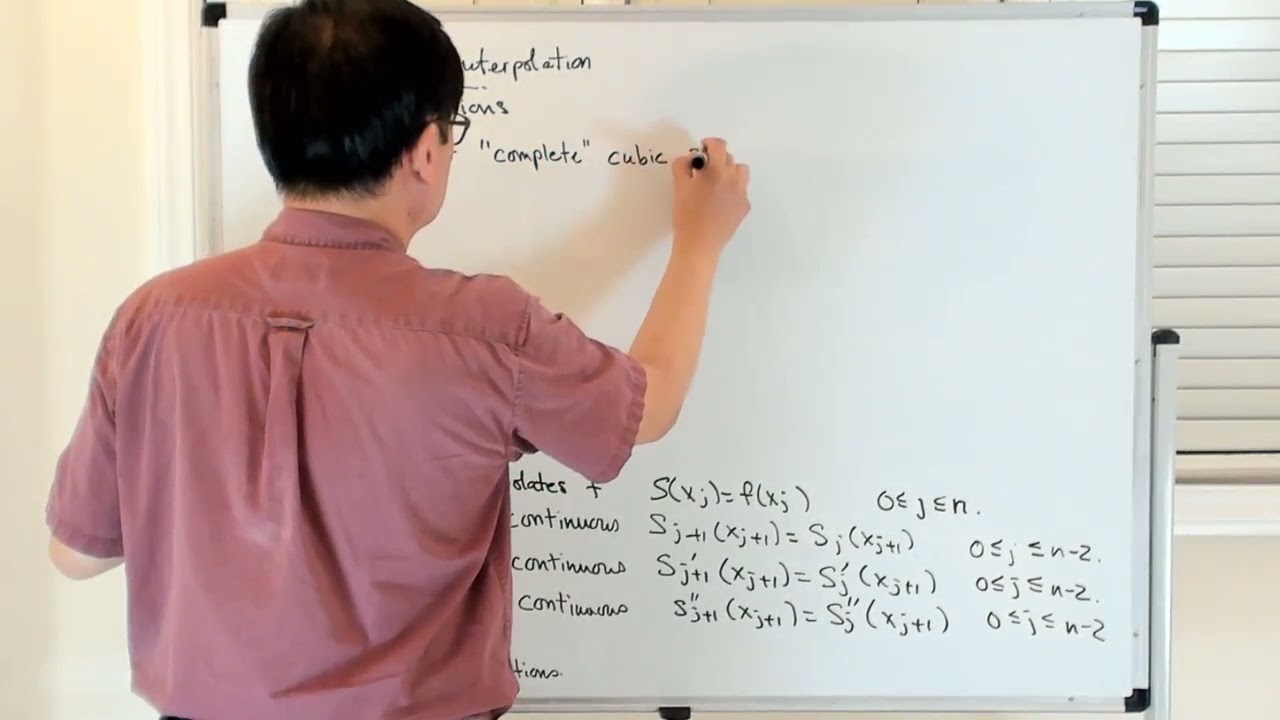 nterpolation
ions
"complete" cubic
olates f S(xj)=f(xj) 0≤j≤n.
continuous Sj+1(xj+1)=Sj(xj+1) 0≤j≤n-2.
continuous S'j+1(xj+1)=S'j(xj+1) 0≤j≤n-2.
continuous S''j+1(xj+1)=S''j(xj+1) 0≤j≤n-2
tions.